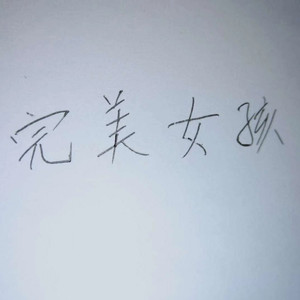 完美女孩